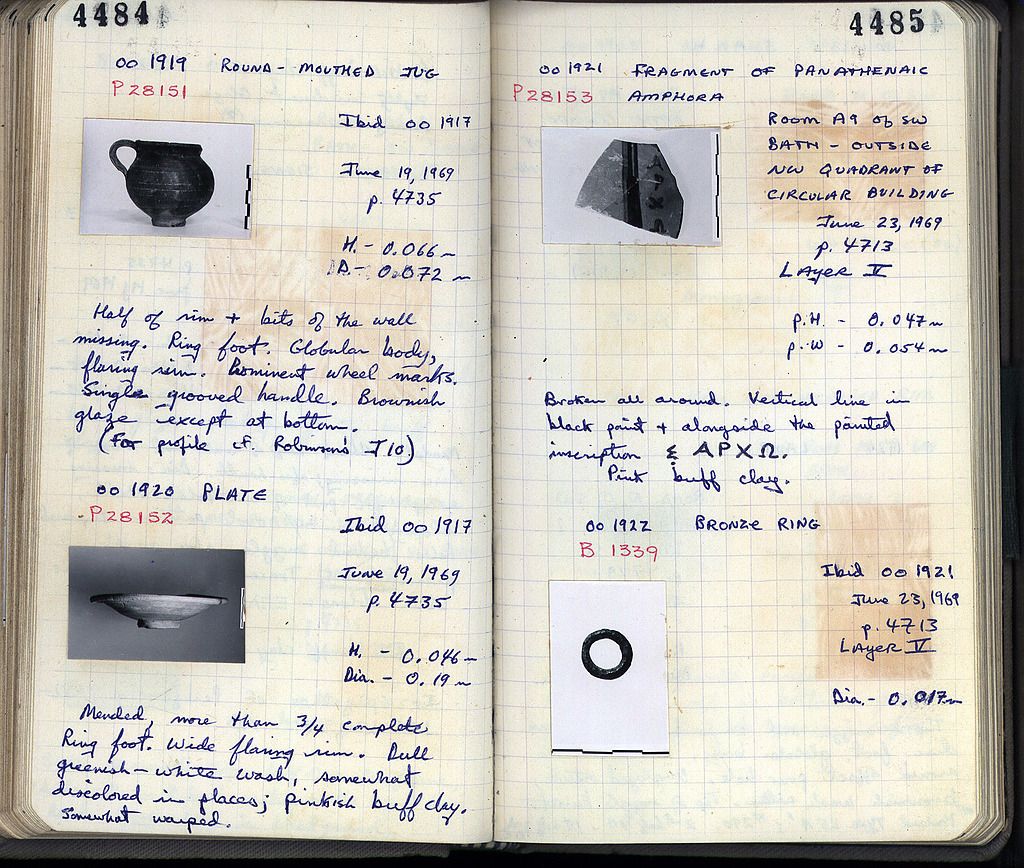 4484
oo 1919 ROUND-MOUTHED JUG
P28151
Ibid oo 1917
June 19, 1969
p. 4735
H. - 0.066 m
D. - 0.072 m
Half of rim + bits of the wall
missing. Ring foot. Globular body,
flaring rim. Prominent wheel marks.
Single grooved handle. Brownish
glaze except at bottom.
(For profile cf. Robinson's J10)
oo 1920 PLATE
P28152
Ibid oo 1917
June 19, 1969
p. 4735
H. - 0.046 m
Dia. - 0.19 m
Mended, more than 3/4 complete
Ring foot. Wide flaring rim. Dull
greenish-white wash, somewhat
discolored in places; pinkish buff clay.
Somewhat warped.
4485
oo 1921 FRAGMENT OF PANATHENAIC
P28153 AMPHORA
ROOM A9 of SW
BATH - OUTSIDE
NW QUADRANT OF
CIRCULAR BUILDING
June 23, 1969
p. 4713
LAyer V
p.H. - 0.047 m
p.W - 0.054 m
Broken all around. Vertical line in
black paint + alongside the painted
inscription ΑΡΧΩ.
Pink buff clay.
oo 1922 BRONZE RING
B 1339
Ibid oo 1921
June 23, 1969
p. 4713
LAyer V
Dia. - 0.017 m